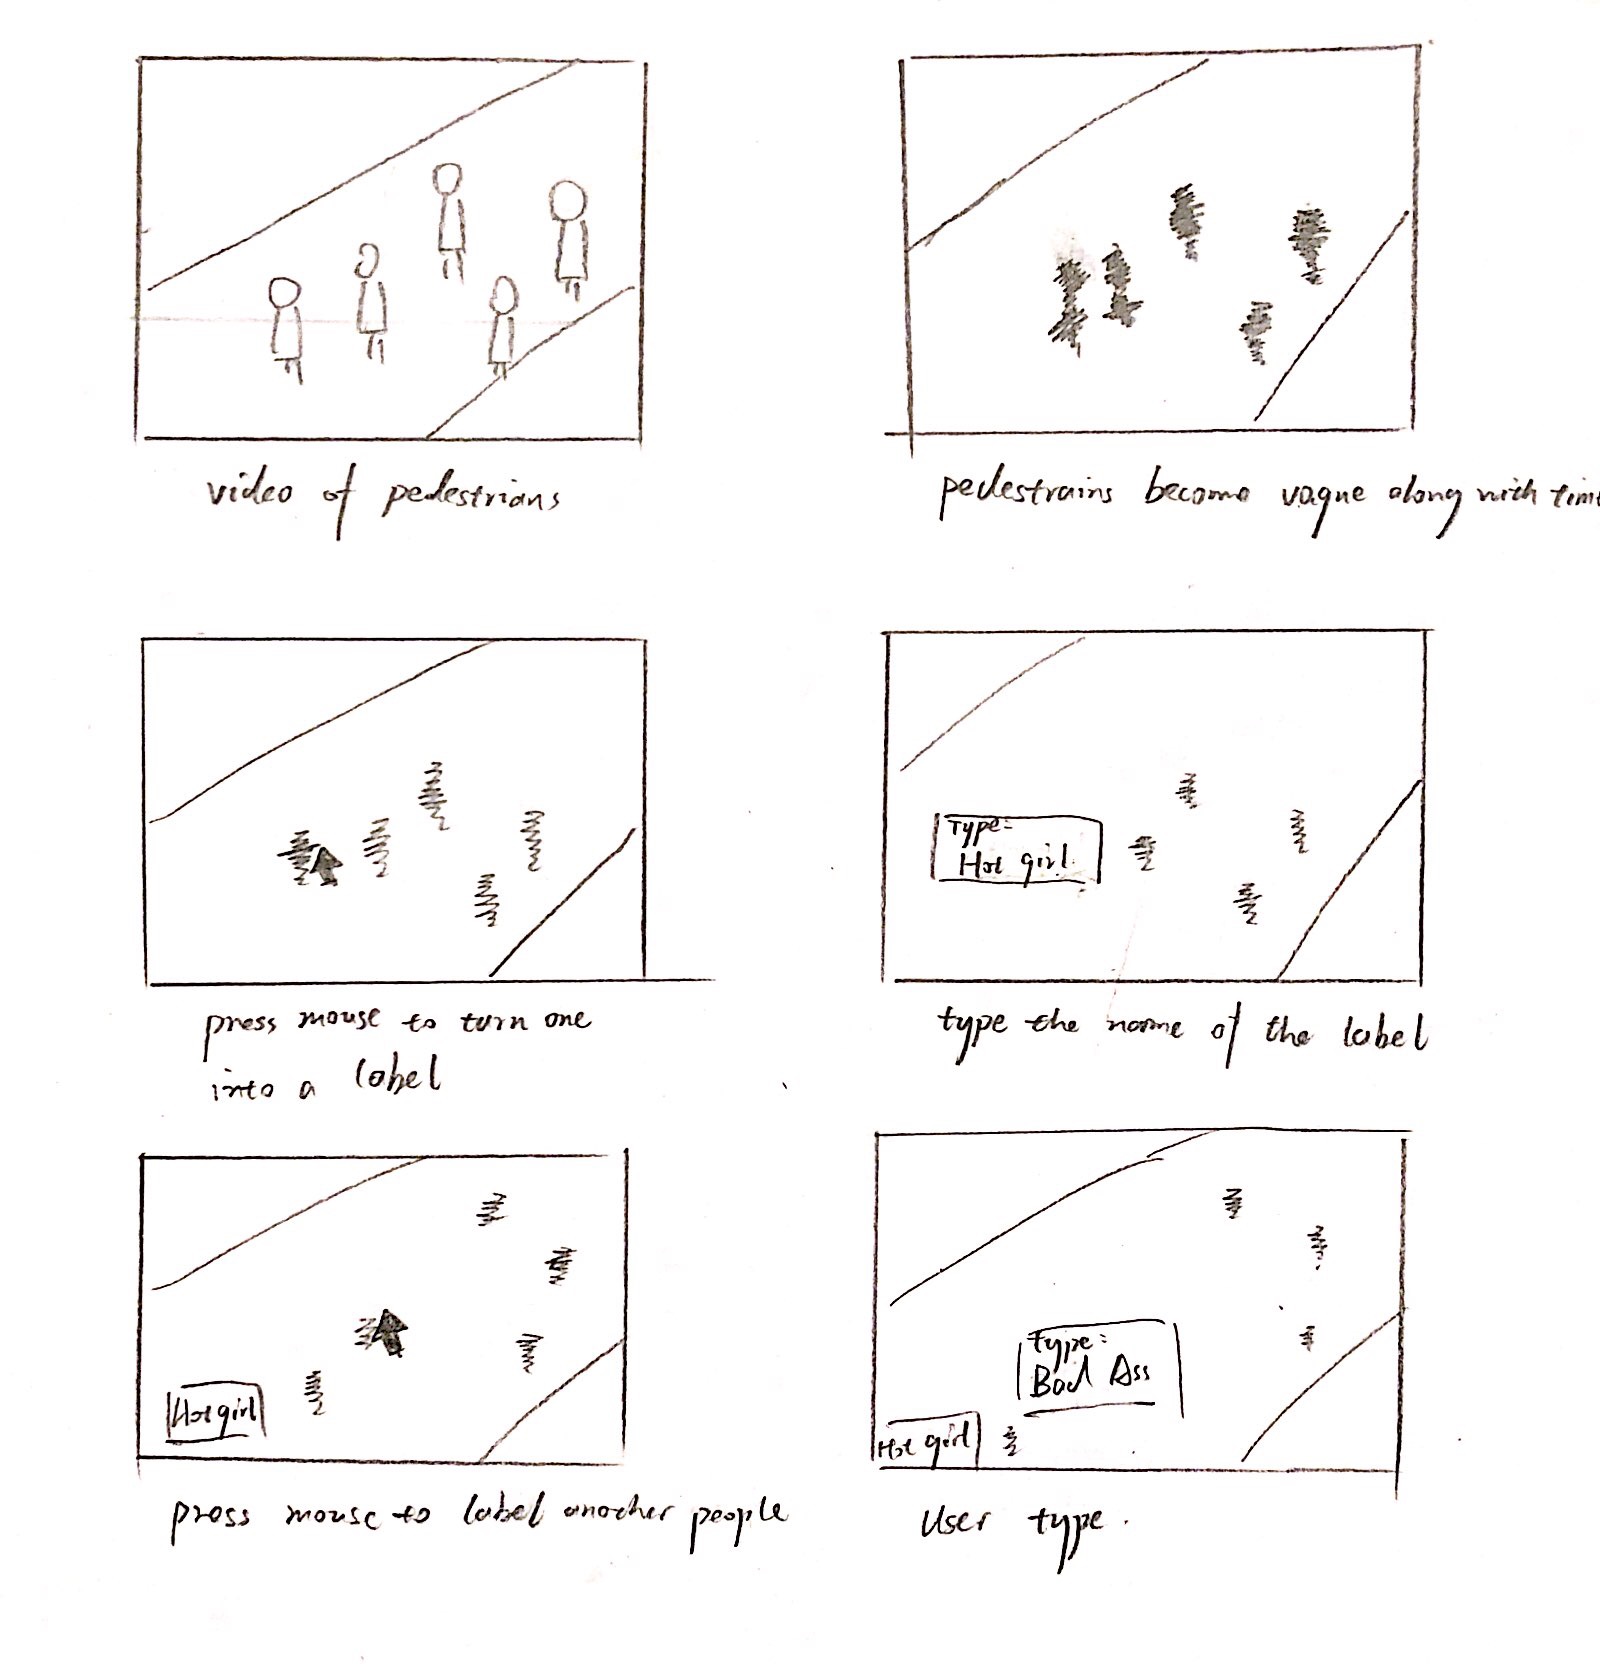 video of pedestrians
pedestrains become vague along with time
press mouse to turn one
into a label
Type:
Hot girl
type the name of the label
Hot girl
press mouse to label another people
type:
Bad Ass
Hot girl
User type.